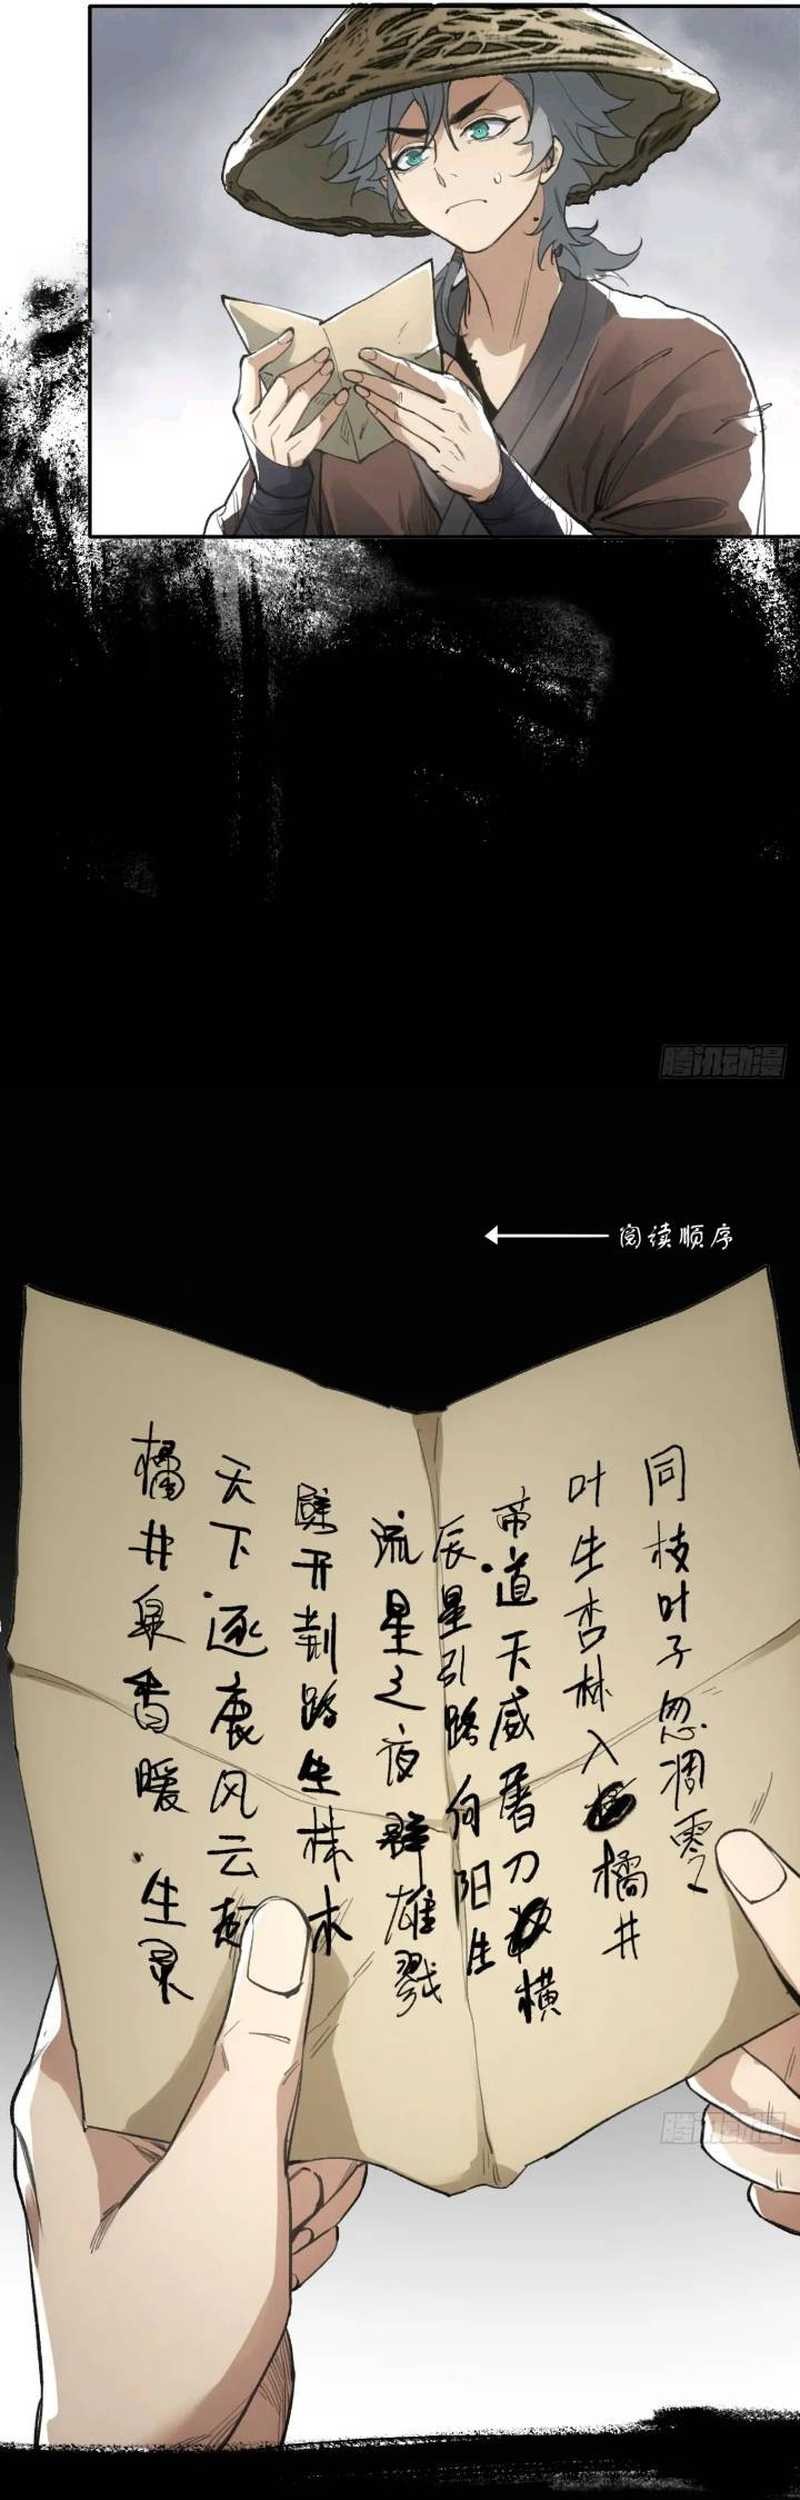 腾讯动漫
阅读顺序
同枝叶子忽凋零
叶生杏林入橘井
帝道天威屠刀横
辰星引路向阳生
流星之夜群雄戮
劈开荆路生株木
天下逐鹿风云起
橘井泉香暖生灵
腾讯动漫